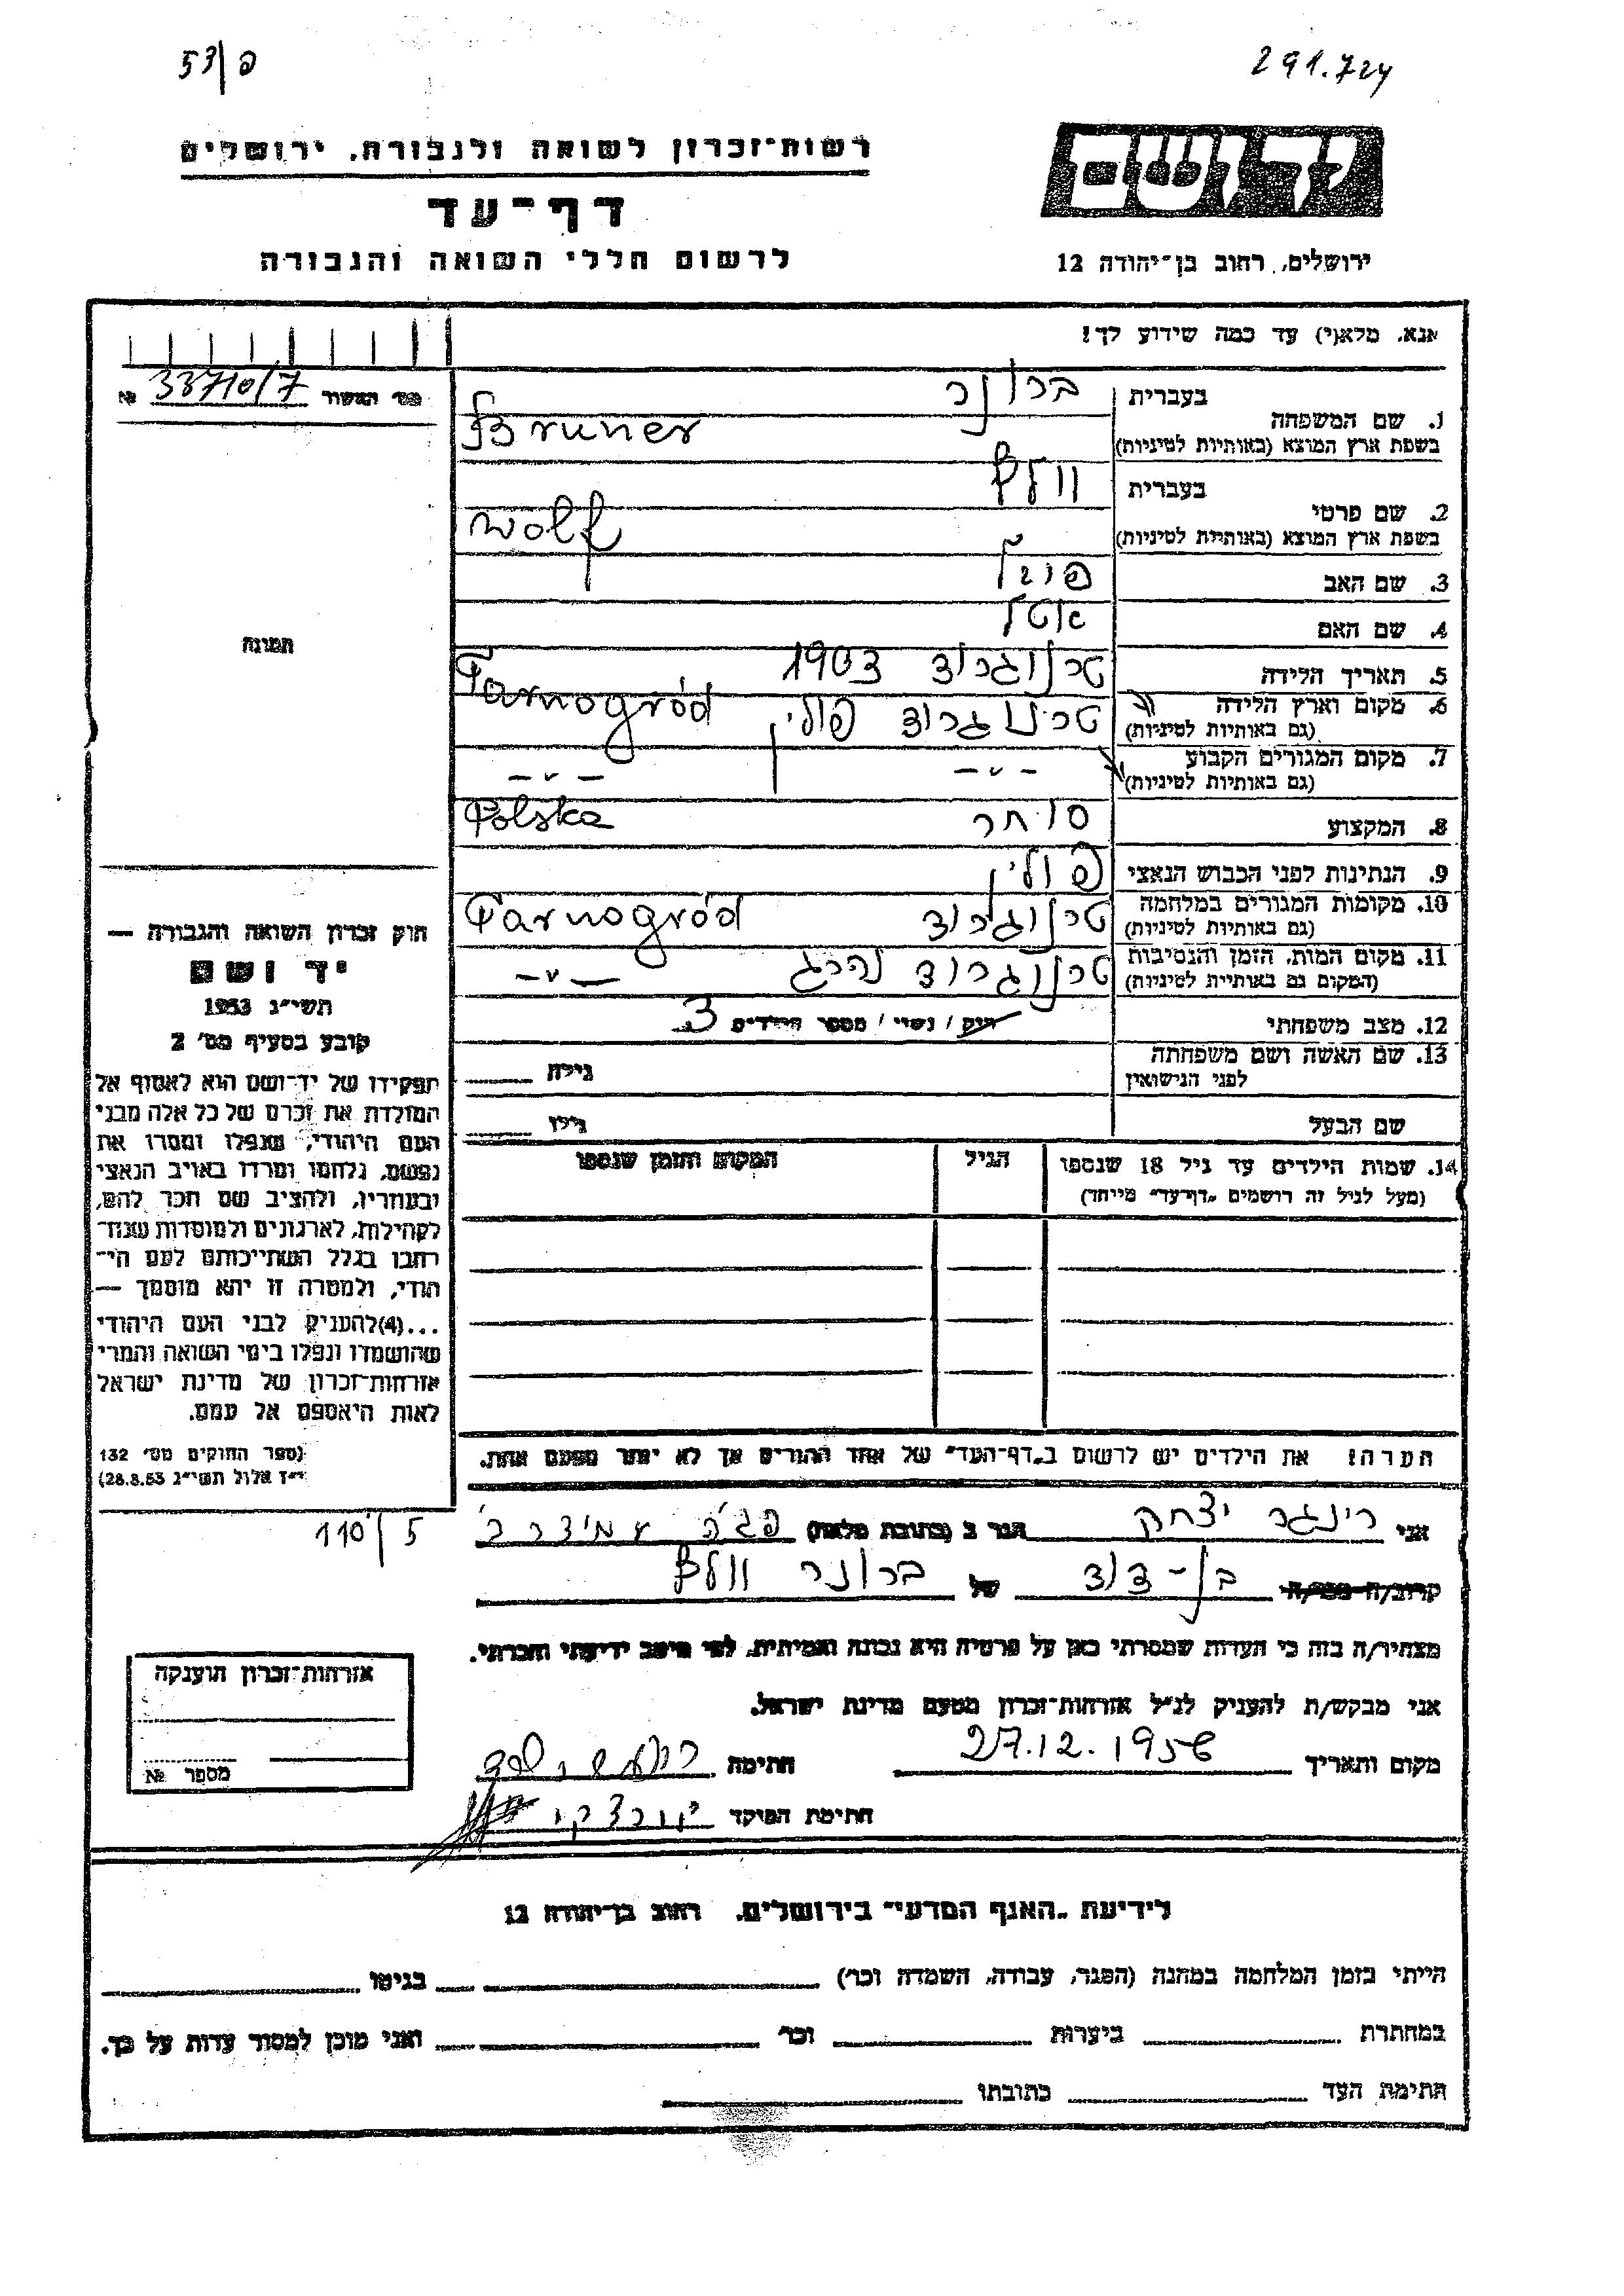 53/פ
291.724
רשות־זכרון לשואה ולגבורה, ירושלים
יד ושם
דף־עד
לרשום חללי השואה והגבורה
ירושלים, רחוב בן־יהודה 12
אנא, מלא(י) עד כמה שידוע לך!
מס׳ האשור 33710/7 №
1. שם המשפחה
בעברית ברונר
בשפת ארץ המוצא (באותיות לטיניות) Bruner
2. שם פרטי
בעברית וולף
בשפת ארץ המוצא (באותיות לטיניות) Wolf
3. שם האב
4. שם האם אטל
5. תאריך הלידה טרנוגרוד 1903
6. מקום וארץ הלידה (גם באותיות לטיניות) טרנוגרוד פולין Tarnogród
7. מקום המגורים הקבוע (גם באותיות לטיניות) — ״ — — ״ —
8. המקצוע סוחר Polska
9. הנתינות לפני הכבוש הנאצי פולין
10. מקומות המגורים במלחמה (גם באותיות לטיניות) טרנוגרוד Tarnogród
11. מקום המות, הזמן והנסיבות (המקום גם באותיות לטיניות) טרנוגרוד נהרג — ״ —
12. מצב משפחתי רווק / נשוי / מספר הילדים 3
13. שם האשה ושם משפחתה לפני הנישואין גילה
שם הבעל גילו
14. שמות הילדים עד גיל 18 שנספו הגיל המקום והזמן שנספו
(מעל לגיל זה רושמים „דף־עד״ מייחד)
הערה! את הילדים יש לרשום ב„דף־העד״ של אחד ההורים אך לא יותר מפעם אחת.
תמונה
חוק זכרון השואה והגבורה —
יד ושם
תשי״ג 1953
קובע בסעיף מס׳ 2
תפקידו של יד־ושם הוא לאסוף אל
המולדת את זכרם של כל אלה מבני
העם היהודי, שנפלו ומסרו את
נפשם, נלחמו ומרדו באויב הנאצי
ובעוזריו, ולהציב שם וזכר להם,
לקהילות, לארגונים ולמוסדות שנח־
רבו בגלל השתייכותם לעם הי־
הודי, ולמטרה זו יהא מוסמך —
...(4)להעניק לבני העם היהודי
שהושמדו ונפלו בימי השואה והמרי
אזרחות־זכרון של מדינת ישראל
לאות היאספם אל עמם.
(ספר החוקים מס׳ 132
י״ז אלול תשי״ג 28.8.53)
110/5
אני רינגר יצחק הגר ב (כתובת מלאה) עמידר ב׳
קרוב/ה מכר/ה בן־דוד של ברונר וולף
מצהיר/ה בזה כי העדות שמסרתי כאן על פרטיה היא נכונה ואמיתית, לפי מיטב ידיעתי והכרתי.
אני מבקש/ת להעניק לנ״ל אזרחות־זכרון מטעם מדינת ישראל.
מקום ותאריך 27.12.1956 חתימה
חתימת הפוקד
אזרחות־זכרון הוענקה
מספר №
לידיעת „האגף המדעי״ בירושלים, רחוב בן־יהודה 12
הייתי בזמן המלחמה במחנה (הסגר, עבודה, השמדה וכו׳) בגיטו
במחתרת ביערות וכו׳ ואני מוכן למסור עדות על כך.
חתימת העד כתובתו